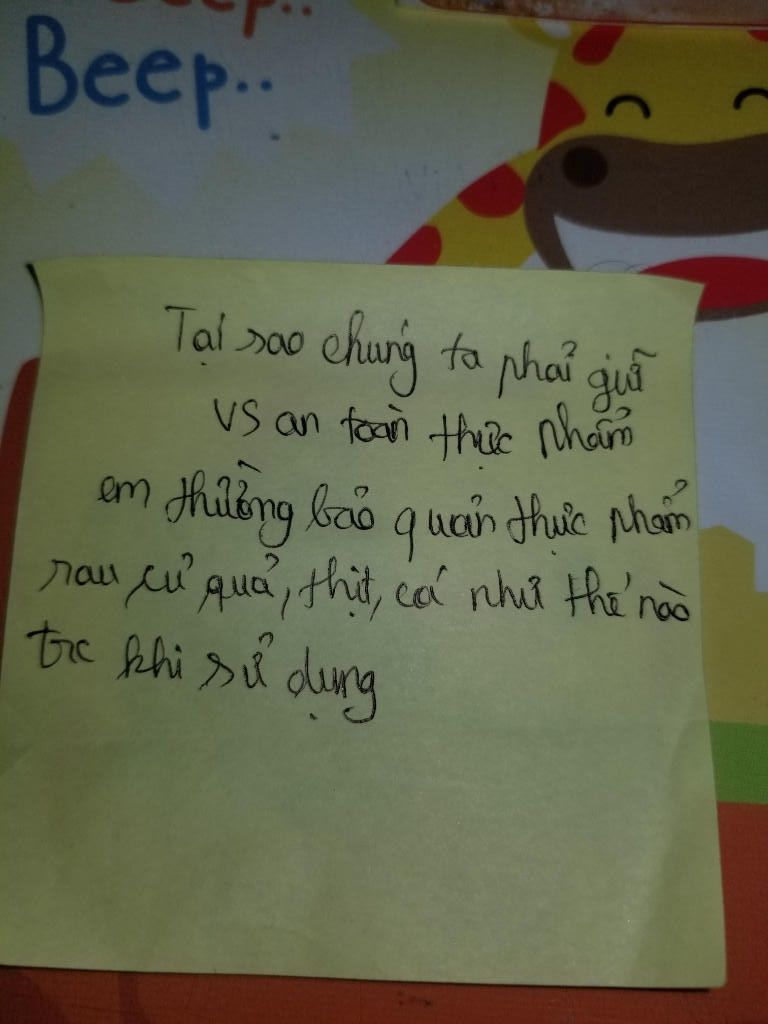 Beep..
Beep..
Tại sao chúng ta phải giữ
VS an toàn thực phẩm
em thường bảo quản thực phẩm
rau củ quả, thịt, cá như thế nào
trc khi sử dụng